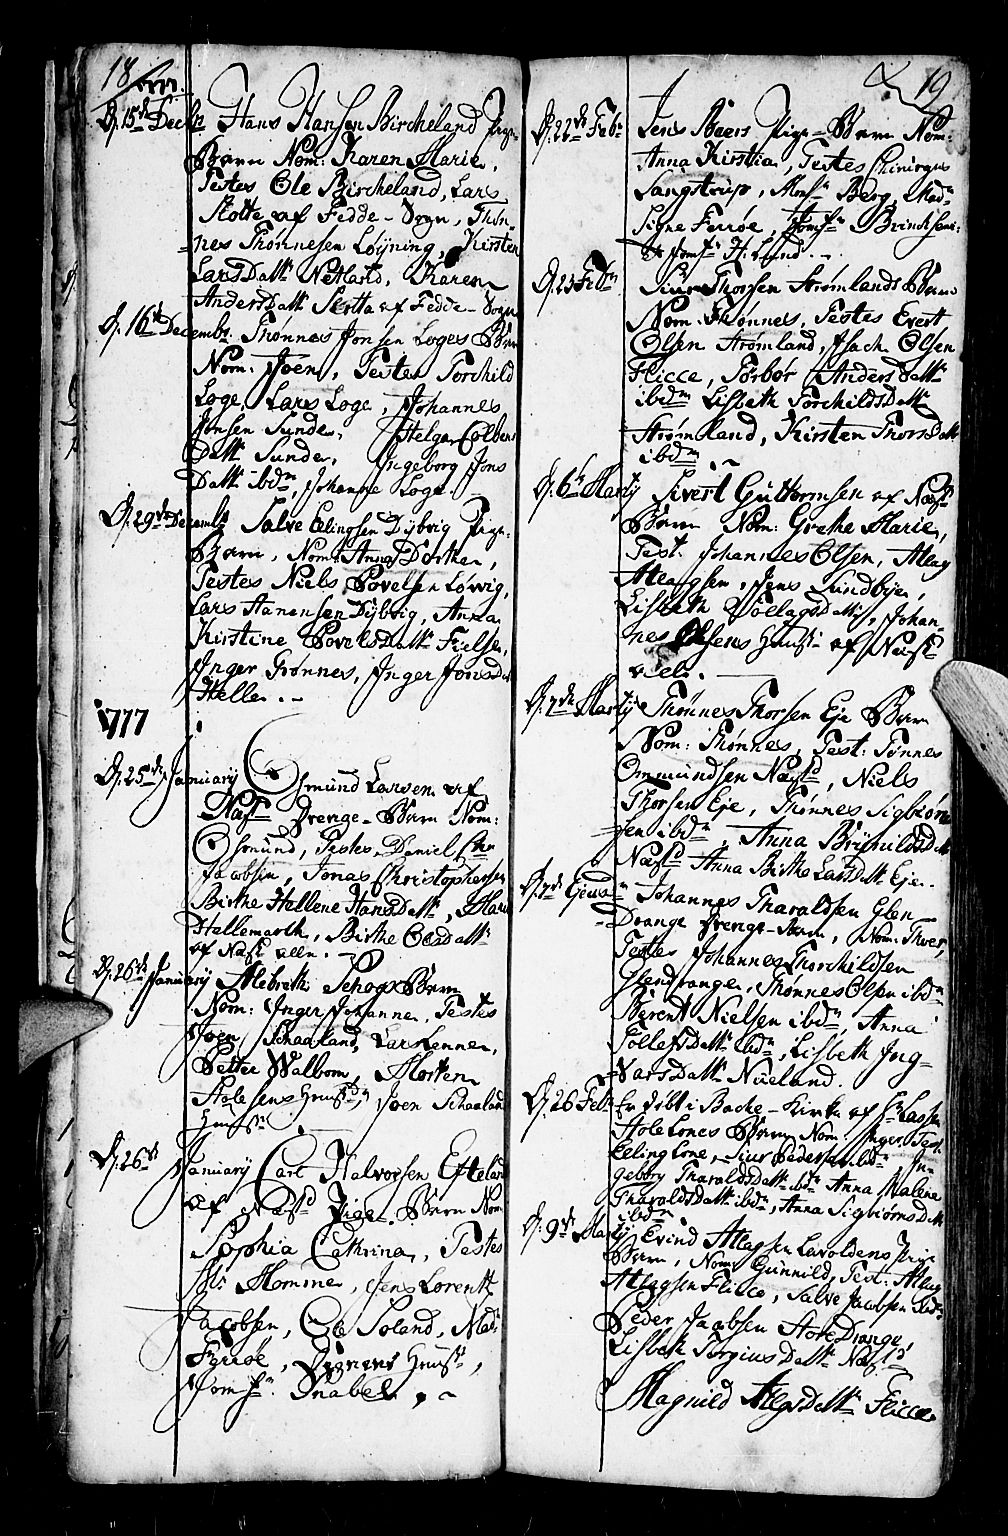 18
D. 15de Decbr Hans Hansen Bircheland Pige-
Barn Nom: Karen Marie,
Testes Ole Bircheland, Lars
Stolte af Fedde-Sogn, Thøn-
nes Thønnesen Løyning, Kirsten
LarsDattr Netland, Karen
AndersDattr af Fedde-Sogn
D. 16de Decembr. Thønnes Jonsen Loges Barn
Nom: Joen, Testes Torchild
Loge, Lars Loge, Johannes
Jonsen Sunde, Helga
Dattr Sunde, Ingeborg Jons
Dattr ibdm, Johanne Loge.
D. 29de Decembr Salve Elingsen Dybvig Pige-
Barn, Nom: Anna Dorthea,
Testes Niels Povelsen Løvig,
Lars Aanensen Dybvig, Anna
Kirstine PovelsDattr Fielse,
Inger Grønnes, Inger JonsDatr
Helle. -
1777
D. 25de January Osmund Larsen af
Næss Drenge-Barn Nom:
Osmund, Testes, Daniel
Jacobsen, Jonas Christophersen
Birthe Hellene HansDattr, Marie
Hallemarth, Birthe OlesDattr
af Næss alle. -
D. 26de January Albreth Schogs Barn
Nom: Inger Johanne, Testes
Joen Schaaland, Lars Lenne,
Petter Walbom, Morten
Holesens Hustr, Joen Schaaland
Hustr.
D. 26de January Carl Halvorsen Efteland
af Næss Pige-Barn Nom
Sophia Cathrina, Testes
Hr. Homme, Jens Lorentz
Jacobsen, Ole Soland, Mad:
Ferrøe, Hustr,
Jomfr. Snabel, -
19
D. 22de Febr Jens Beers Pige-Barn Nom:
Anna Kirstina, Testes Chirurgus
Langstrup, Monsr Berg, Madm
Signe Ferrøe, Jomfr
et Jomfr H. Lund. -
D. 23 Febr Siur Thorsen Strømlands Barn
Nom: Thønnes, Testes Evert
Olsen Strømland, Isach Olsen
Flicce, Torbor AndersDattr
ibdm Lisbeth TorchildsDattr
Strømland, Kirsten ThorsDattr
ibdm
D. 6te Marty Sivert Guttormsen af Næss
Barn Nom: Grethe Marie,
Test. Johannes Olsen, Atlag
Atlagsen, Jens Lindbye,
Lisbeth DollagsDattr, Johan-
nes Olsens Hustr af Næss
alle. -
D. 7de Marty Thønnes Thorsen Eje Barn
Nom: Thønnes, Test: Tønnes
Ommundsen Næss, Niels
Thorsen Eje, Thønnes Sigbiørn
sen ibdm, Anna BrynildsDattr
Næss Anna Birthe LarsDattr Eje.
D. 7de Ejusdm Johannes Tharaldsen Glen-
Drange Drenge-Barn, Nom: Thver,
Testes Johannes Torchildsen
Glendrange, Thønnes Olsen ibdm
Berent Nielsen ibdm, Anna
TollefsDattr ibdm, Lisbeth Ing-
varsDattr Nueland.
D. 26 Febr Er døbt i Backe-Kirke af Hr. Lassen
Hole Lones Barn Nom. Inger Test.
Eeling Lone, Siur Pedersen ibdm, In-
geborg TharaldsDattr ibdm Anna Malena
TharaldsDattr ibdm, Anna SigbiørnsDattr
ibdm
D. 9de Marty Evind Atlagsen Lavoldens Pige
Barn, Nom: Gunnild, Test: Atlag
Atlagsen Flicce, Salve Jacobsen
Peder Jacobsen HoleDrange,
Lisbeth TorgiusDattr Næss
Magnild AtlgsDattr Flicce